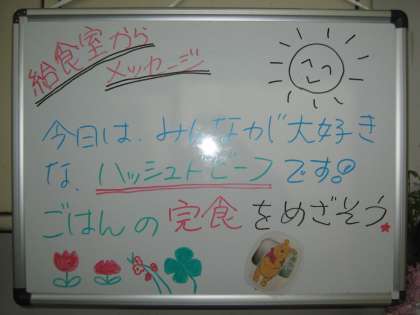 給食室から
メッセージ
今日は、みんなが大好き
な、ハッシュドビーフです!
ごはんの完食をめざそう